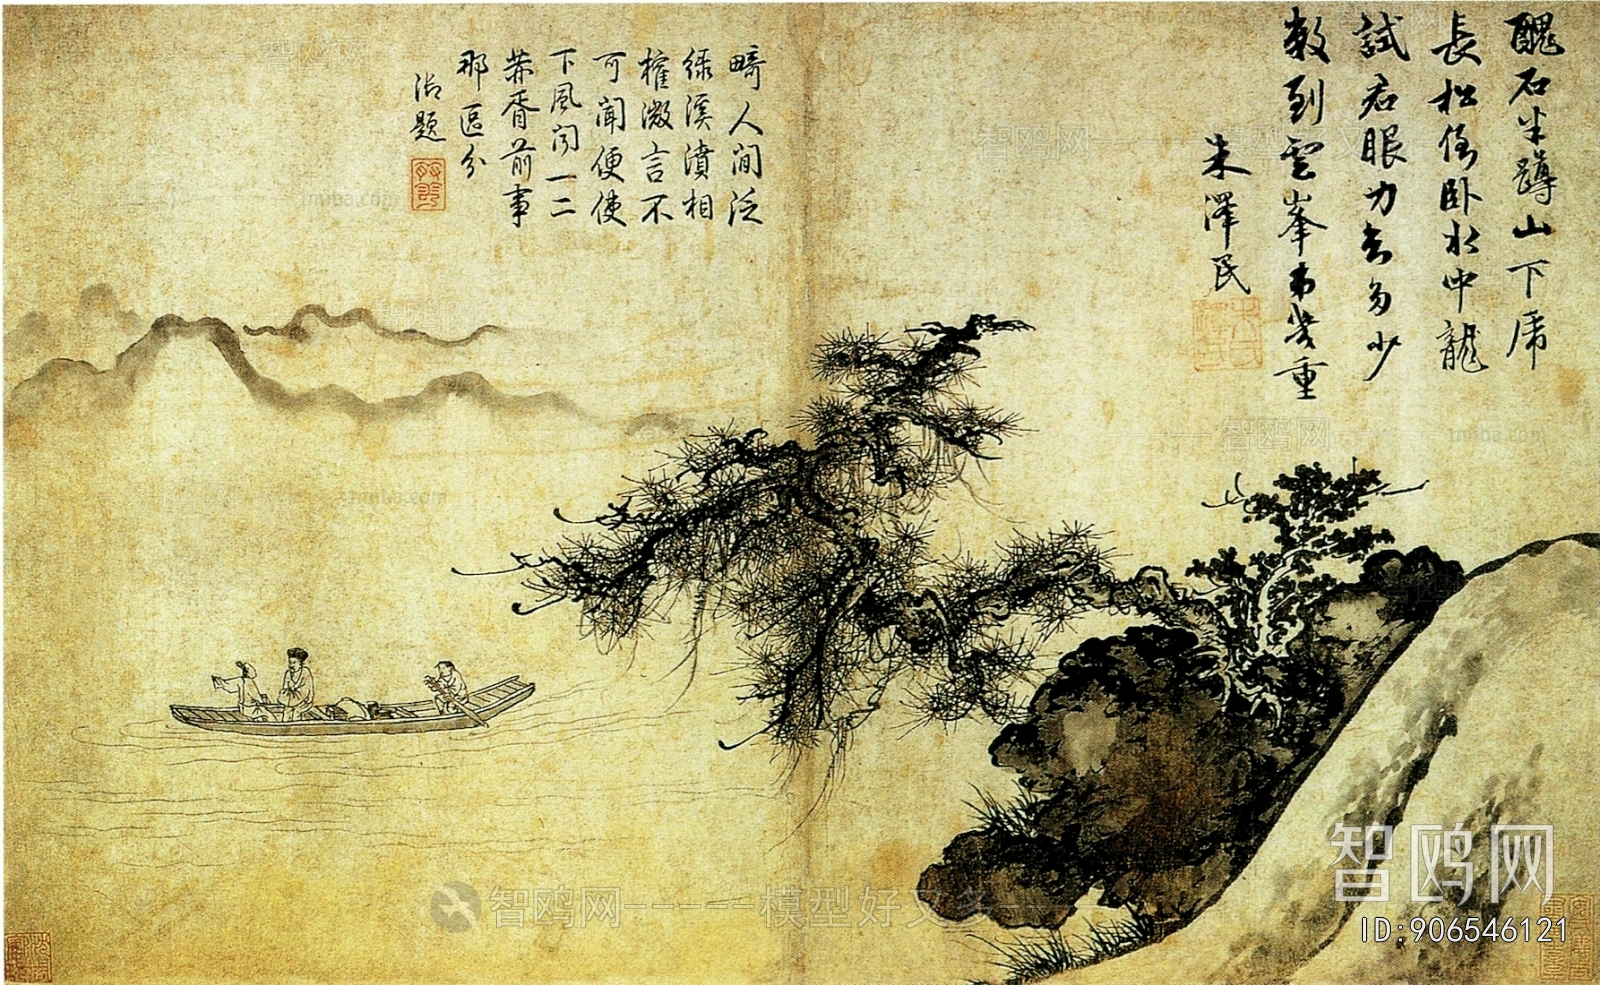 醜石半蹲山下虎
長松倒卧水中龍
試君眼力知多少
數到雲峯第幾重
朱澤民
畸人閒泛
緑溪濆相
榷微言不
可聞便使
下風问一二
華胥前事
那區分
御題
智鸥网
ID:906546121
智鸥网-----模型好又多-----